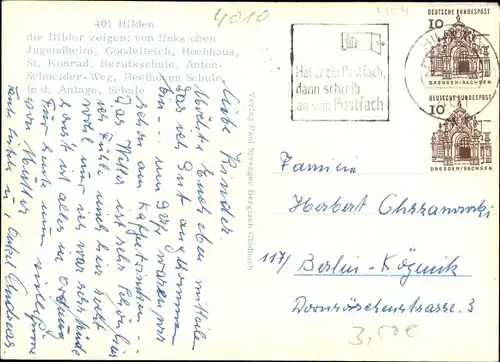 401 Hilden
die Bilder zeigen: von links oben
Jugendheim, Gondelteich, Hochhaus,
St. Konrad, Berufsschule, Anton-
Schneider-Weg, Beethoven Schule
in d. Anlage, Schule
4010
Liebe Kinder.
Möchte Euch eben mitteilen
das ich gut angekommen
bin – um 9 Uhr waren wir
schon am Kaffeetrinken.
Das Wetter ist sehr schön
ich fühle mich hier recht
wohl nur ich war sehr müde
sonst ist alles in Ordnung
Für heute nun viele Grüße
von Mutter
Tante u. Onkel Andreas
Verlag Paul Sprenger Bergisch Gladbach
Hat er ein Postfach,
dann schreib
an sein Postfach
DEUTSCHE BUNDESPOST
10
DRESDEN/SACHSEN
DEUTSCHE BUNDESPOST
10
DRESDEN/SACHSEN
Familie
Herbert Chrzanowski
117/ Berlin-Köpenik
Dornröschenstrasse 3
3,50€